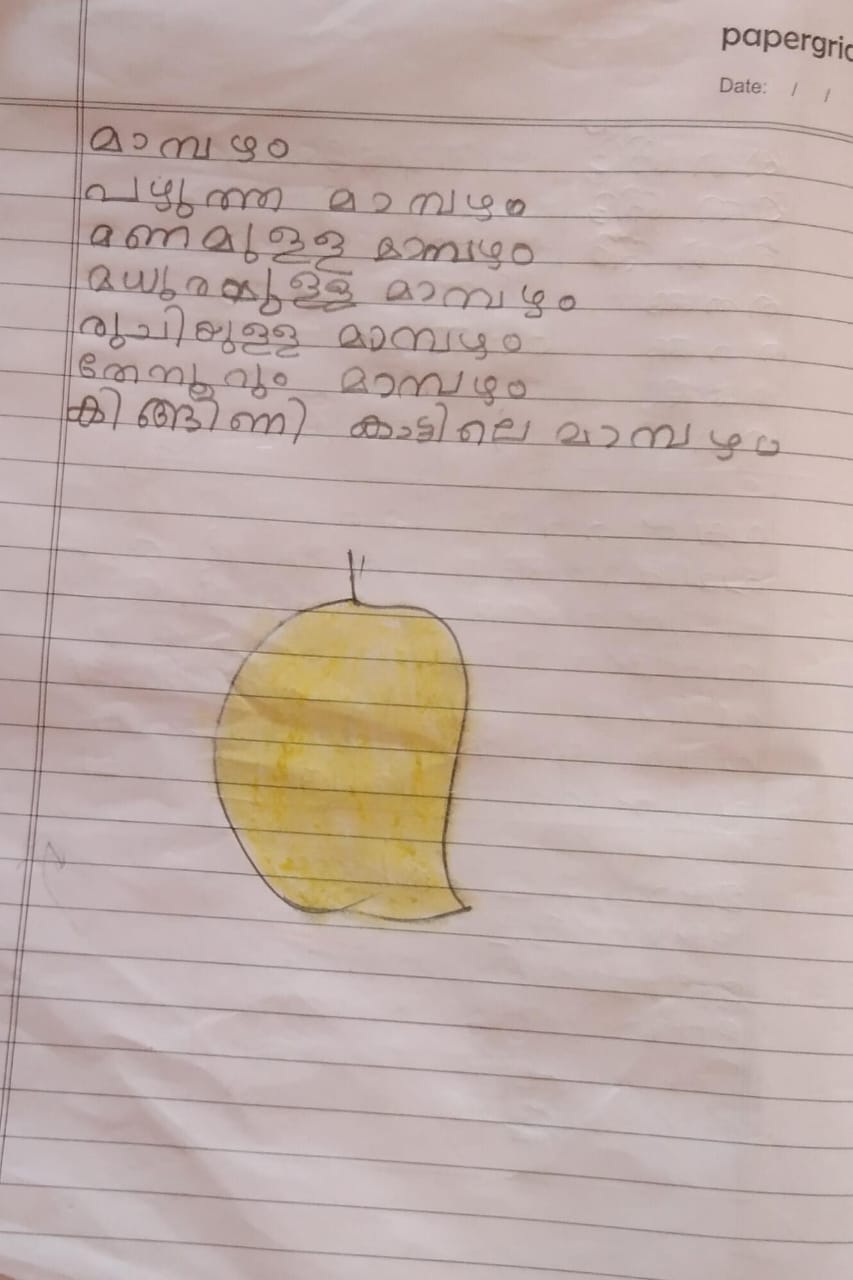 papergrid
Date: / /
മാമ്പഴം
പഴുത്ത മാമ്പഴം
മണമുള്ള മാമ്പഴം
മധുരമുള്ള മാമ്പഴം
രുചിയുള്ള മാമ്പഴം
തേനൂറും മാമ്പഴം
കിങ്ങിണി കാട്ടിലെ മാമ്പഴം